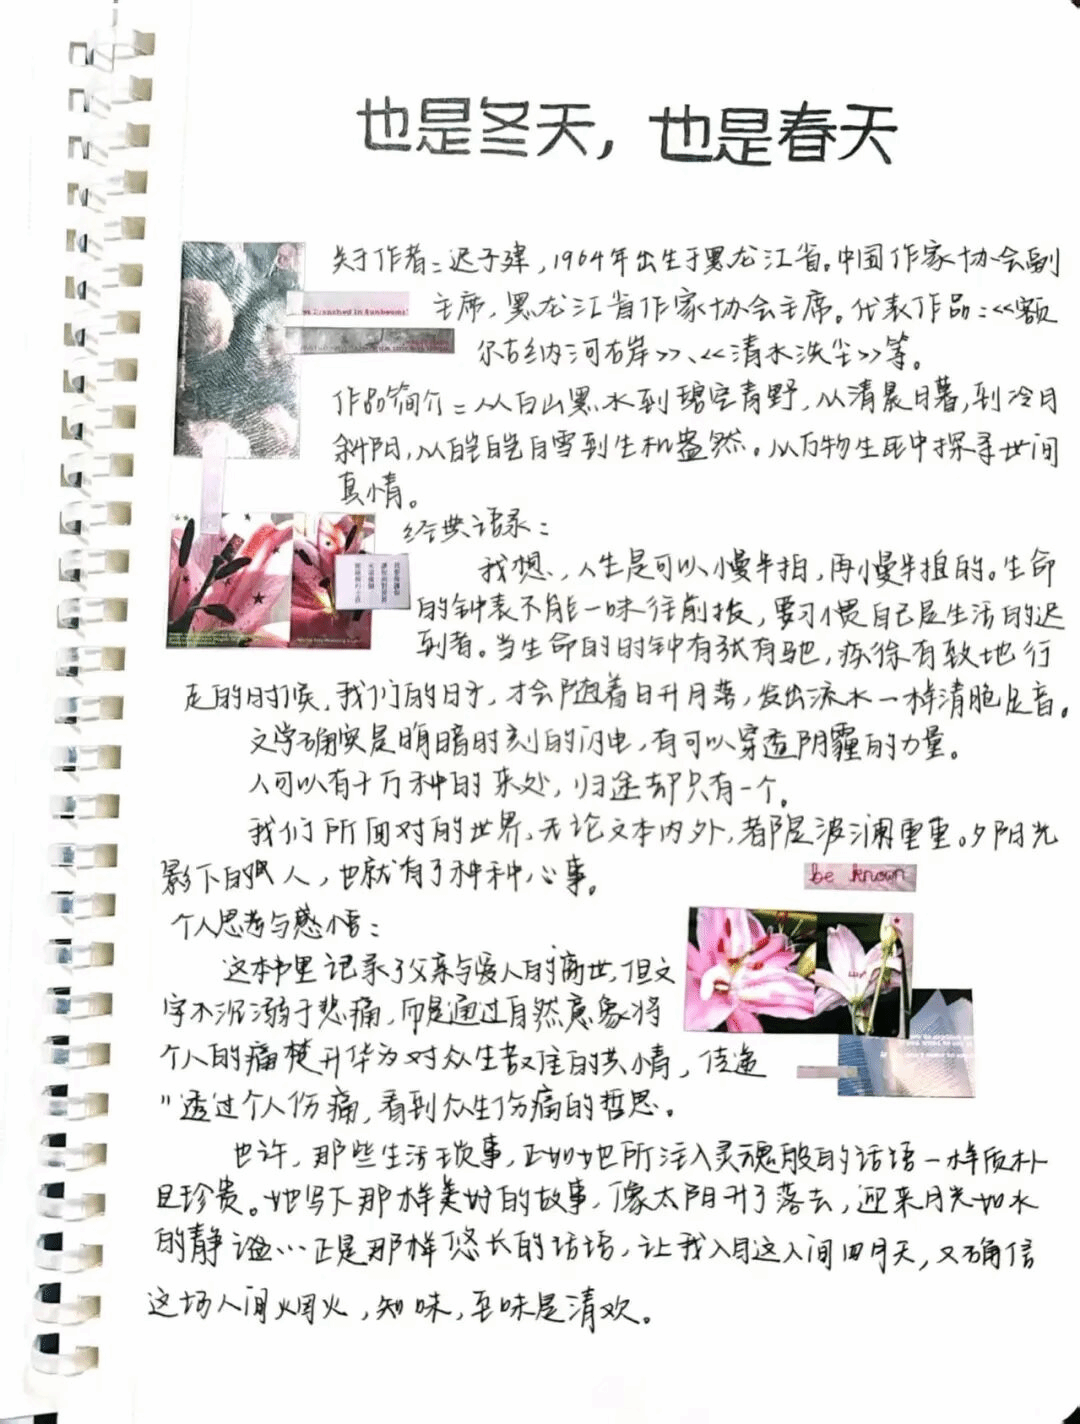 也是冬天，也是春天
关于作者：迟子建，1964年出生于黑龙江省。中国作家协会副
主席，黑龙江省作家协会主席。代表作品：<<额
尔古纳河右岸>>、<<清水洗尘>>等。
作品简介：从白山黑水到碧空青野，从清晨日暮，到冷月
斜阳，从皑皑白雪到生机盎然。从万物生死中探寻世间
真情。
经典语录：
我想，人生是可以慢半拍，再慢半拍的。生命
的钟表不能一味往前拨，要习惯自己是生活的迟
到者。当生命的时钟有张有驰，疾徐有致地行
走的时候，我们的日子，才会随着日升月落，发出流水一样清脆足音。
文学确实是晦暗时刻的闪电，有可以穿透阴霾的力量。
人可以有千万种的来处，归途却只有一个。
我们所面对的世界，无论文本内外，都是波澜重重。夕阳光
影下的人，也就有了种种心事。
be known
个人思考与感悟：
这本书里记录了父亲与爱人的离世，但文
字不沉溺于悲痛，而是通过自然意象将
个人的痛楚升华为对众生的共情，传递
"透过个人伤痛，看到众生伤痛的哲思。
也许，那些生活琐事，正如她所注入灵魂般的话语一样质朴
且珍贵。她写下那样美好的故事，像太阳升了落去，迎来月光如水
的静谧…正是那样悠长的话语，让我入目这人间四月天，又确信
这场人间烟火，知味，至味是清欢。